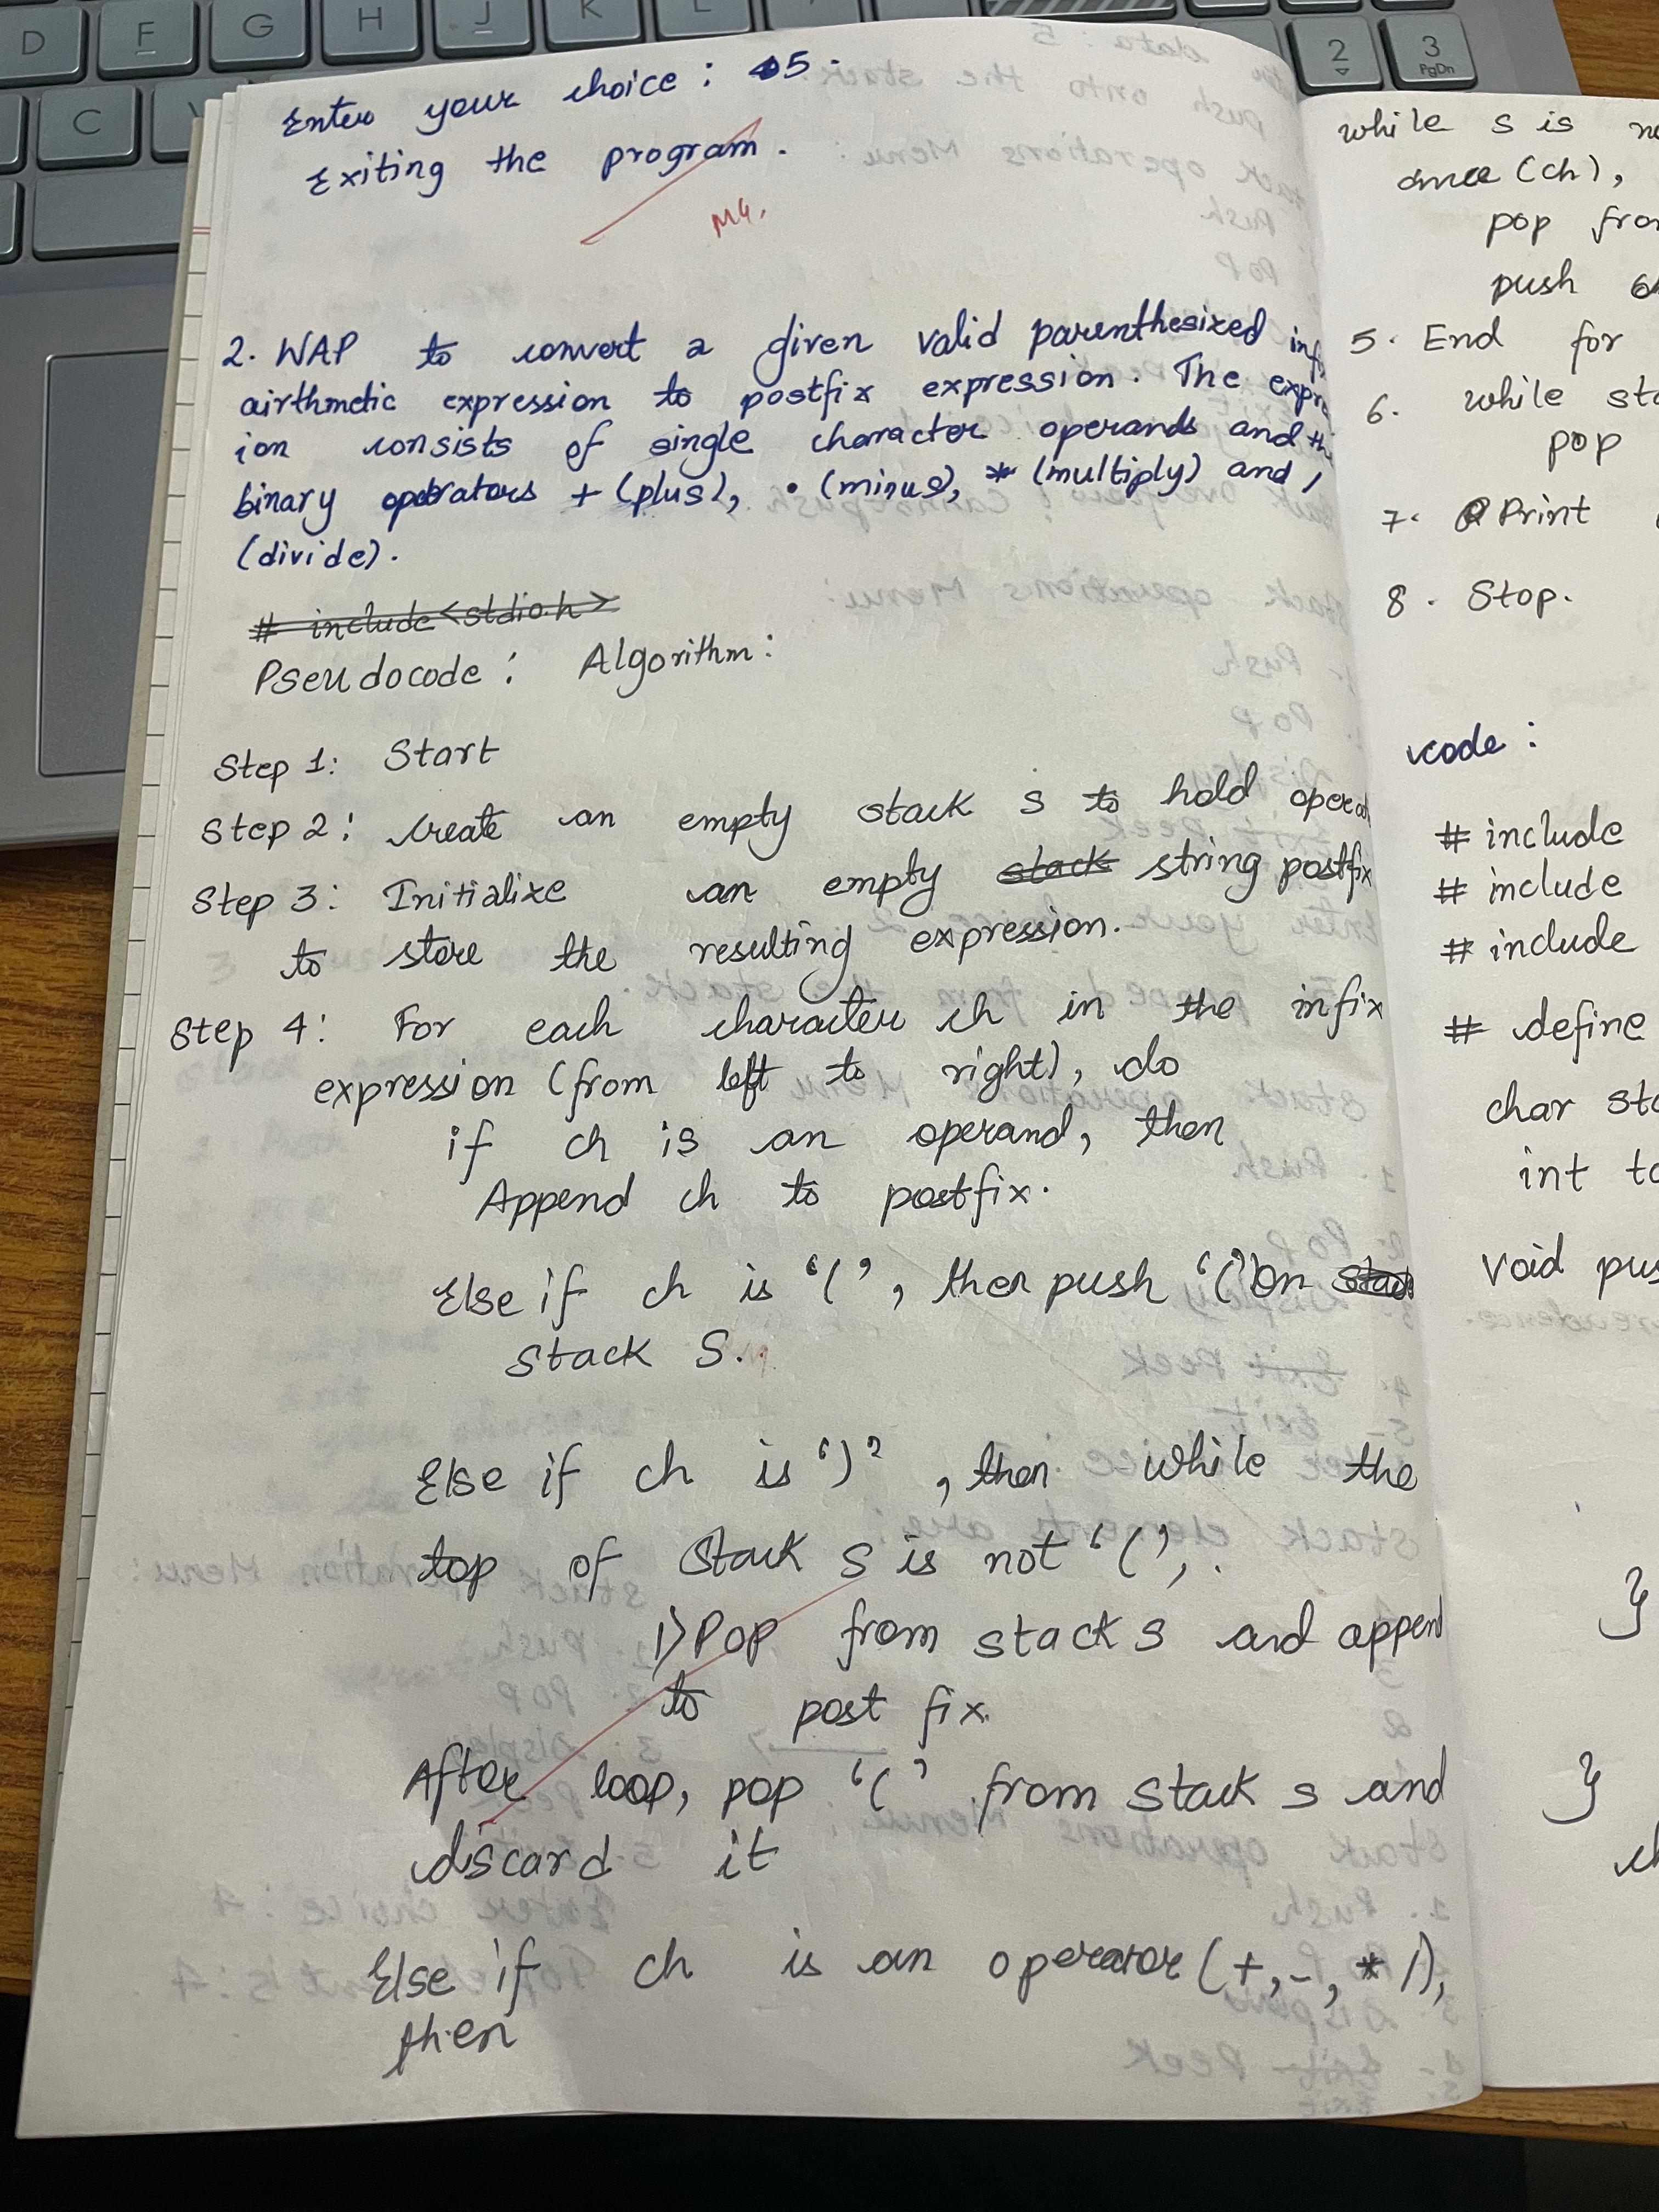 Enter your choice: 5.
Exiting the program.
2. WAP to convert a given valid parenthesized inf
airthmetic expression to postfix expression. The expre
ion consists of single character operands and th
binary operators + (plus), • (minus), * (multiply) and /
(divide).
# include<stdio.h>
Pseudocode: Algorithm:
Step 1: Start
Step 2: create an empty stack s to hold operat
Step 3: Initialize an empty stack string postfix
to store the resulting expression.
Step 4: For each character ch in the infix
expression (from left to right), do
if ch is an operand, then
Append ch to postfix.
Else if ch is '(', then push '(' on stack
stack S.
Else if ch is ')', then while the
top of stack s is not '(',
1) Pop from stack s and append
to post fix.
After loop, pop '(' from stack s and
discard it
Else if ch is an operator (+, -, * /),
then
while s is
(ch),
pop
push
5. End for
6. while
pop
7. Print
8. Stop.
code:
# include
# include
# include
# define
char
int
void
}
}
D F G H J K L
C
2
3
PgDn